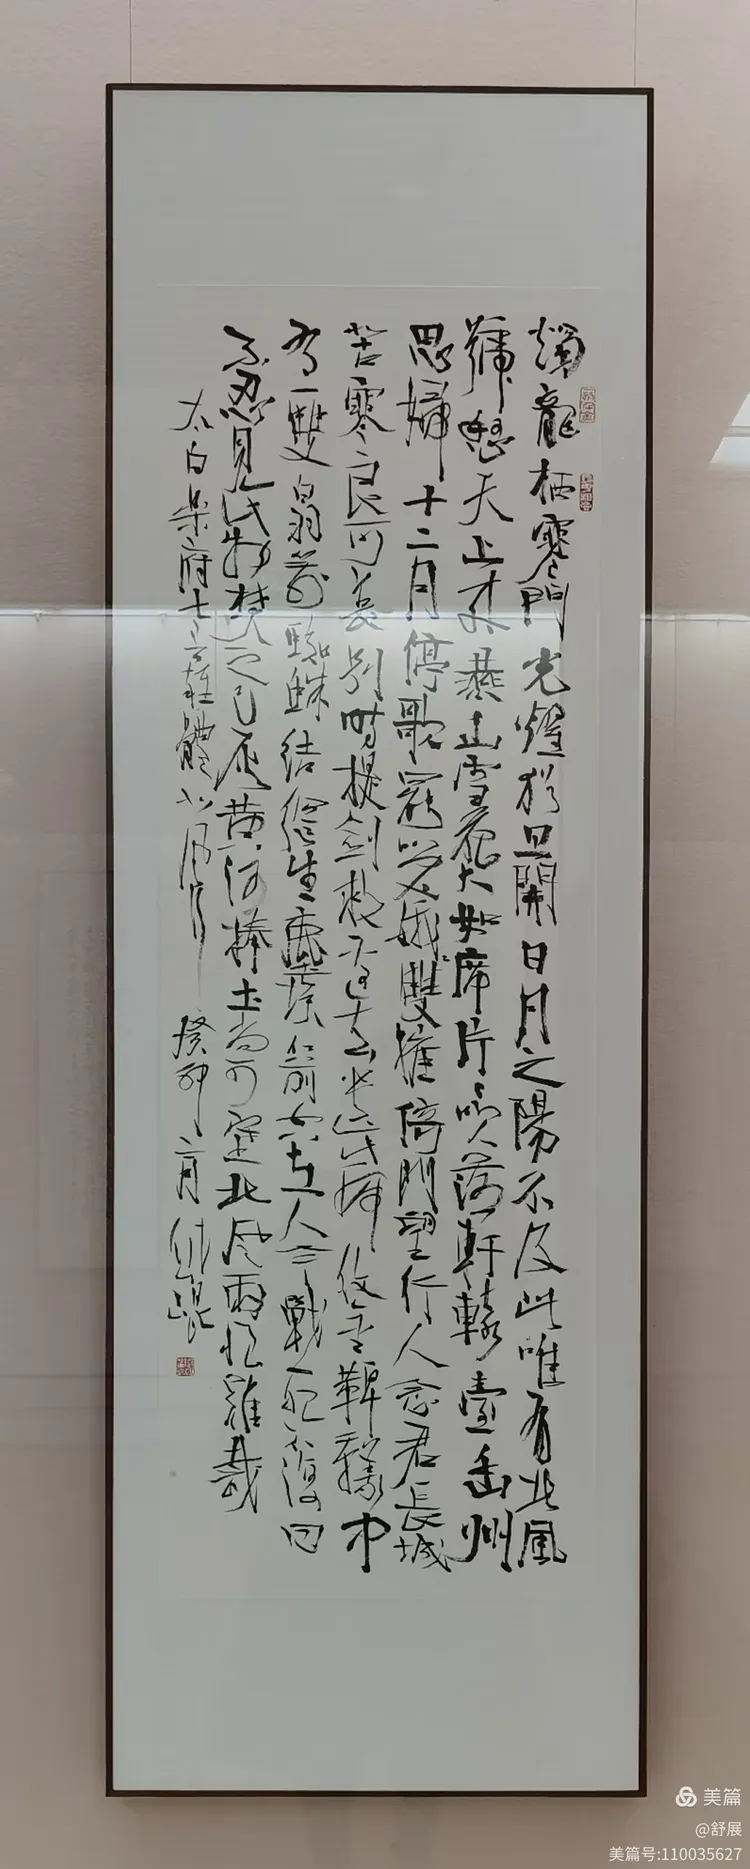 燭龍栖寒門光耀猶旦開日月之陽不及此唯有北風
號怒天上來燕山雪花大如席片片吹落軒轅臺幽州
思婦十二月停歌罷笑娥雙摧倚門望行人念君長城
苦寒良可哀別時提劍救邊去遺此虎紋金鞞靫中
有一雙白羽箭蜘蛛結網生塵埃箭空在人今戰死不復回
不忍見此物焚之已成灰黃河捧土尚可塞北風雨恨難裁
太白樂府雜體北風行 癸卯二月
美篇
@舒展
美篇号:110035627